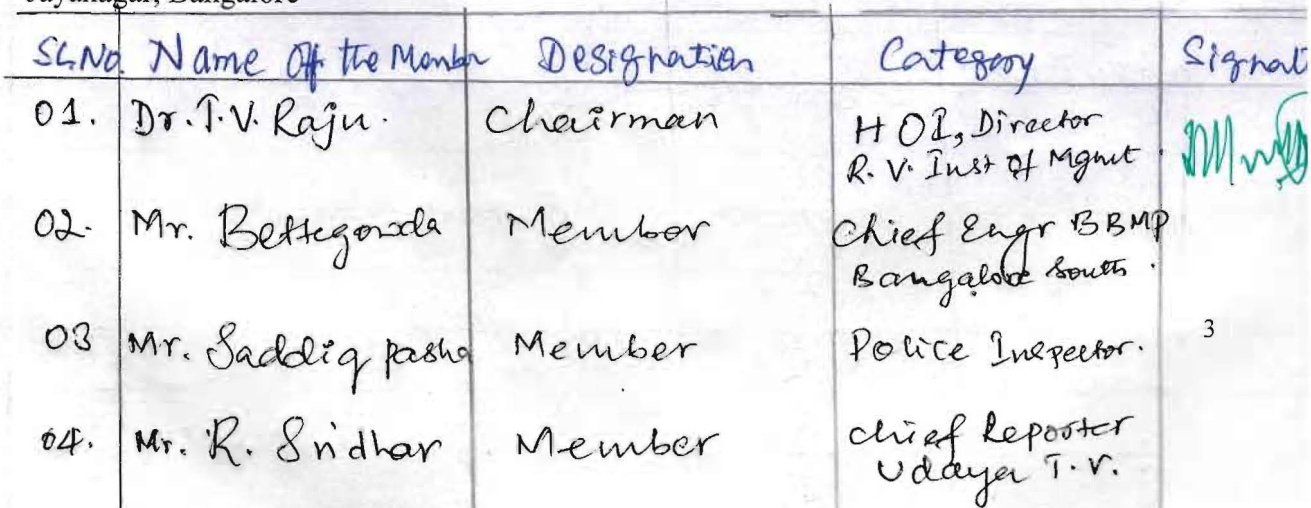 Jayanagar, Bangalore
SL.No Name Off the Member Designation Category Signat
01. Dr. T.V. Raju. Chairman HOI, Director
R. V. Inst Of Mgmt.
02. Mr. Bettegowda Member Chief Engr BBMP
Bangalore South.
03 Mr. Saddiq pasha Member Police Inspector. 3
04. Mr. R. Sridhar Member chief Reporter
Udaya T.V.